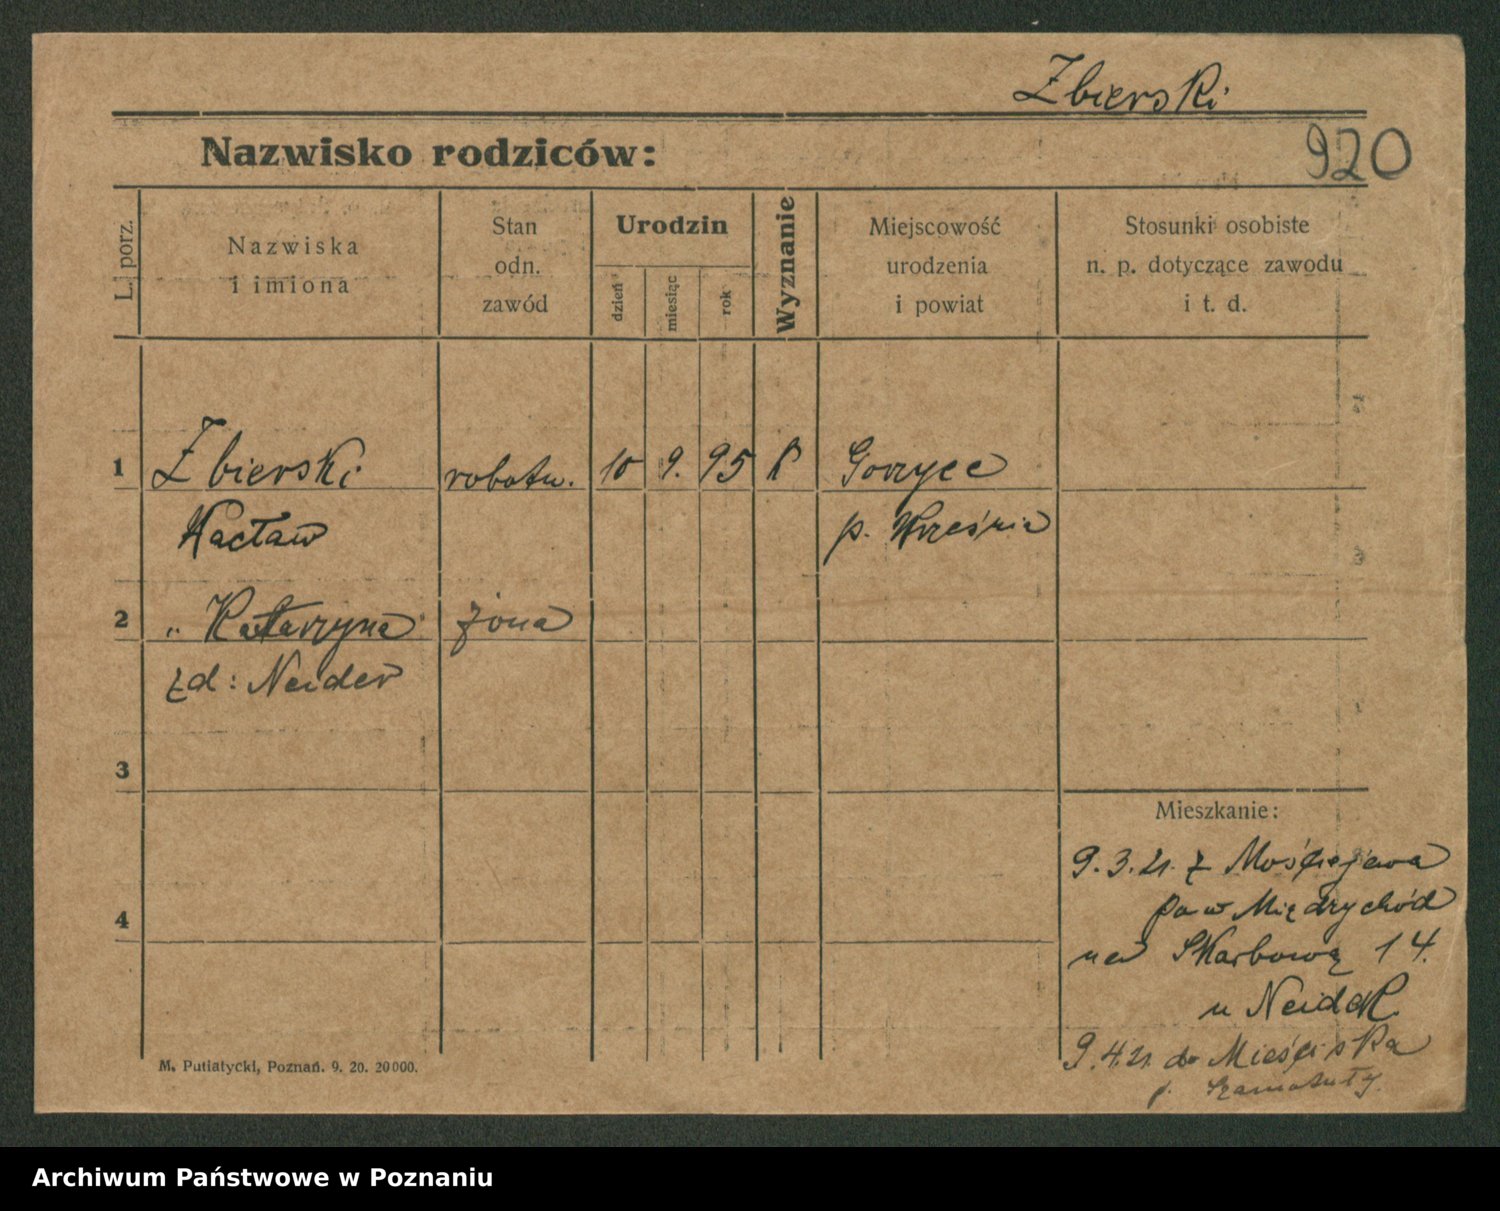 Zbierski
920
Nazwisko rodziców:
L. porz.
Nazwiska
i imiona
Stan
odn.
zawód
Urodzin
dzień
miesiąc
rok
Wyznanie
Miejscowość
urodzenia
i powiat
Stosunki osobiste
n. p. dotyczące zawodu
i t. d.
1 Zbierski robotn. 10 9. 95 k Gorzyce
Wacław p. Września
2 „ Katarzyna żona
zd: Neider
3
Mieszkanie:
9.3.21. z Mościejewa
pow Międzychód
na Skarbową 14.
u Neider
4
9.4.21. do Mieściska
p. Szamotuły.
M. Putiatycki, Poznań. 9. 20. 20000.
Archiwum Państwowe w Poznaniu